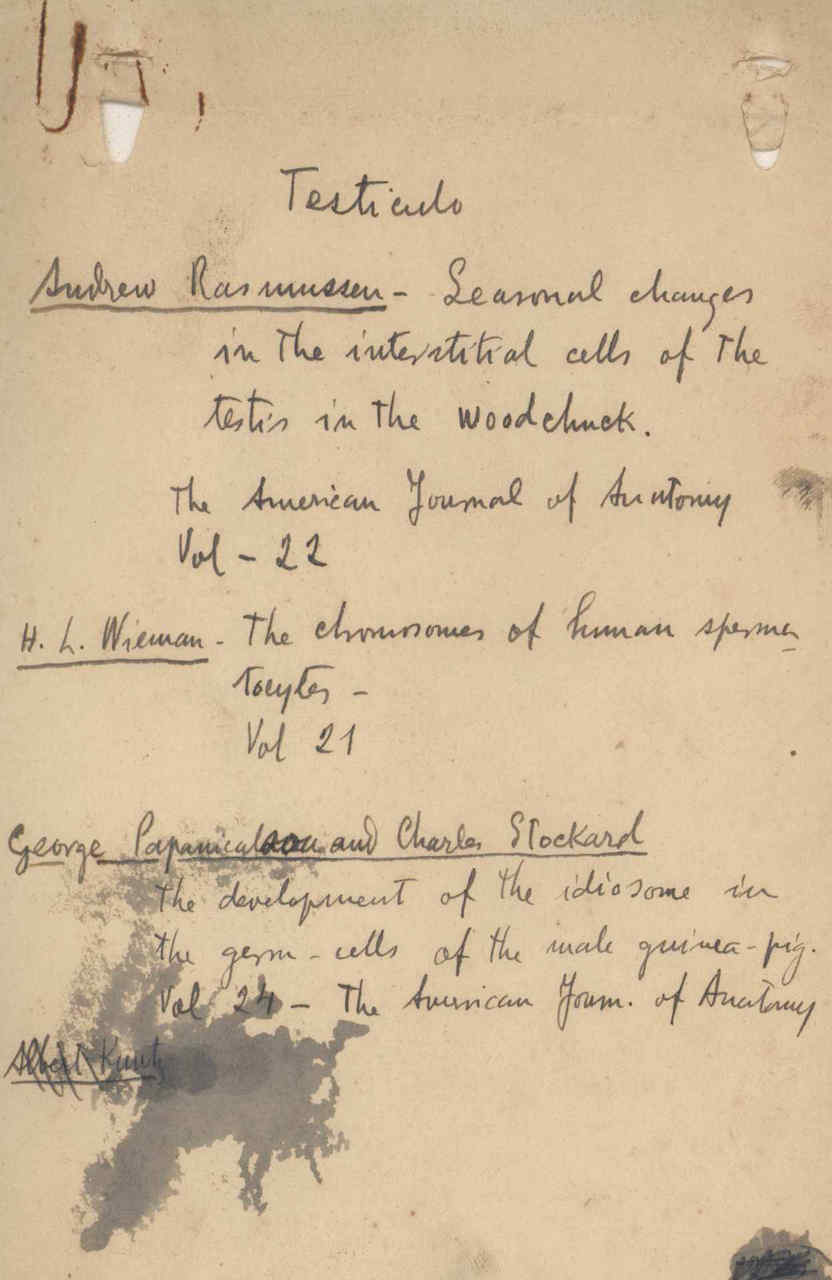 Testiculo
Andrew Rasmussen - Seasonal changes
in the interstitial cells of the
testis in the woodchuck.
The American Journal of Anatomy
Vol - 22
H. L. Wieman - The chromosomes of human sperma-
tocytes -
Vol 21
George Papanicalaou and Charles Stockard
the development of the idiosome in
the germ-cells of the male guinea-pig.
Vol 24 - The American Journ. of Anatomy
Albert Kuntz